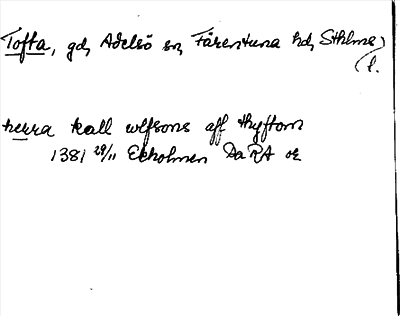 Tofta, gd, Adelsö sn, Färentuna hd, Sthlms
l.
herra kall ulfsons aff thyftom
1381 29/11 Ekholmen Da RA or